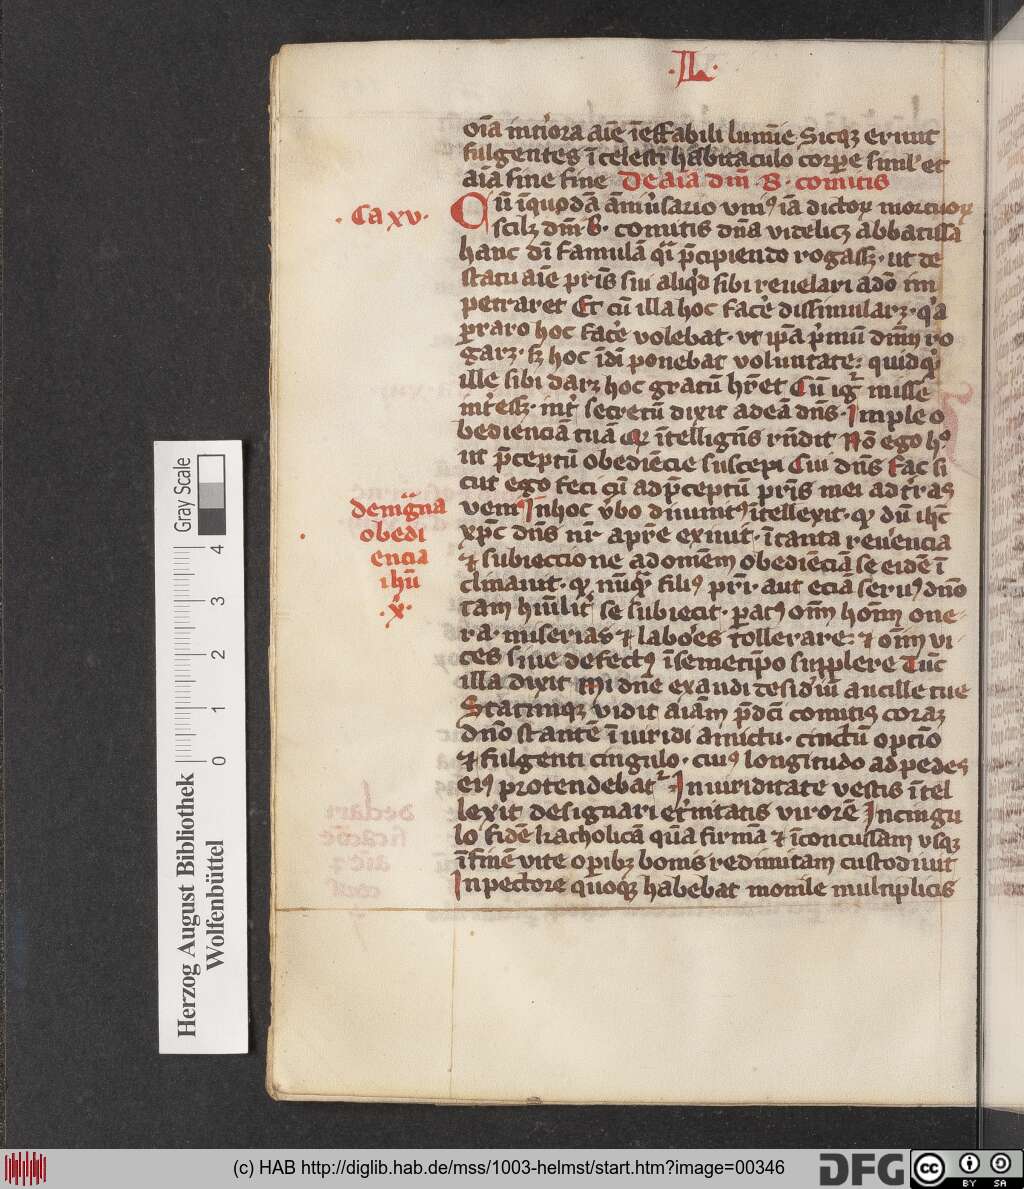 .L.
oīa int'iora aīe īeffabili lumīe Sicqz erunt
fulgentes ī celesti habitaculo corpe simul et
aīa sine fine De aīa dn̄i .B. comitis
.Ca xv.
Cū īquodā āniu'sario vniꝰ iā dictoꝝ mortuoꝝ
scilz dn̄i .B. comitis dn̄a videlicz abbatissa
hanc dī famulā qͥ p̄cipiendo rogassz. ut de
statu aīe pr̄is sui aliqͥd sibi reuelari a dō im
petraret Et cū illa hoc fac'e dissimularz. qͥa
ꝑraro hoc fac'e volebat. vt ip̄a pͥmū dn̄m ro
garz. sz hoc ī dī ponebat voluntate: quidqͥd
ille sibi darz hoc gratū hr̄et Cū igͥ misse
int'essz. int' secretū dixit ad eā dn̄s. Imple o
bedienciā tuā qͥ ītelligēs rn̄dit Nō ego hͦ
ut p̄ceptū obediēcie suscepi Cui dn̄s Fac si
cut ego feci cū ad p̄ceptū pr̄is mei ad t'ras
de mag̅na
obedi
encia
ihū
.x̄.
veni In hoc v'bo diuinitꝰ ītellexit. qꝫ dū ihc
xp̄c dn̄s nr̄ a pr̄e exiuit. ī tanta reu'encia
⁊ subieccione ad om̄em obediēciā se eidē ī
clinauit. qꝫ nūqͣ filiꝰ pr̄i. aut eciā seruꝰ dn̄o
tam hūilit' se subiecit. paratꝰ om̄m hoīm one
ra. miserias ⁊ labores tollerare: ⁊ oīm vi
ces siue defectꝰ ī semetip̄o supplere Tūc
illa dixit Mi dn̄e exaudi desid'iū ancille tue
Statimqz vidit aīam p̄dc̄i comitis coraz
dn̄o stantē ī viridi amictu. cinctū opc̄io
⁊ fulgenti cingulo. cuiꝰ longitudo ad pedes
eiꝰ protendebat' In viriditate vestis ītel
lexit designari et'nitatis virorē In cingu
lo fidē kacholicā quā firmā ⁊ īconcussam vsqz
ī finē vite opibz bonis redimitam custodiuit
In pectore quoqz habebat monile multiplicis
Gray Scale
4
3
2
1
0
Herzog August Bibliothek
Wolfenbüttel
(c) HAB http://diglib.hab.de/mss/1003-helmst/start.htm?image=00346
DFG
cc
BY SA